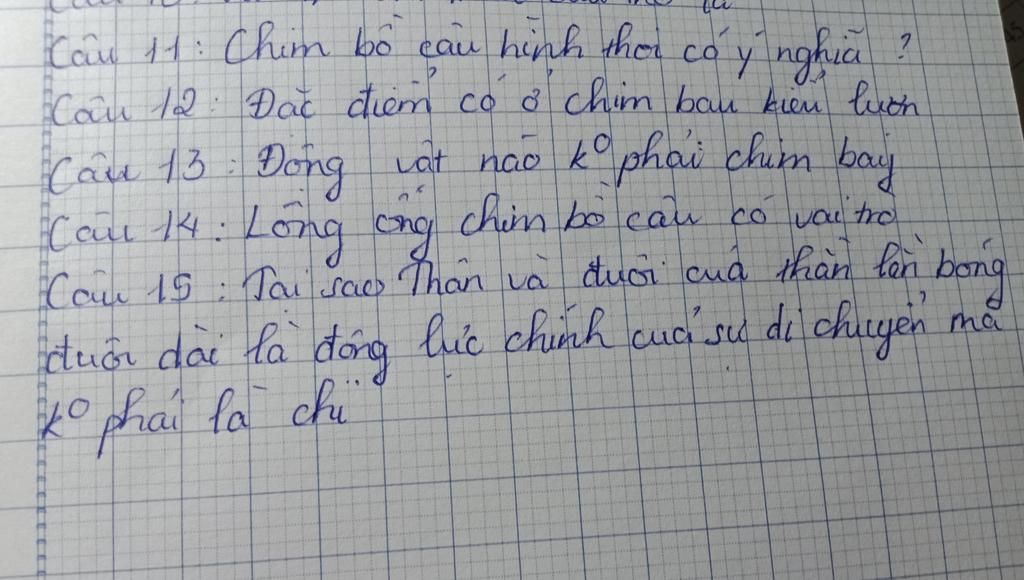 Câu 11: Chim bồ câu hình thoi có ý nghĩa ?
Câu 12: Đặc điểm có ở chim bay kiểu lượn
Câu 13: Động vật nào kº phải chim bay
Câu 14: Lông ống chim bồ câu có vai trò
Câu 15: Tại sao Thân và đuôi của thằn lằn bóng
đuôi dài là động lực chính của sự di chuyển mà
kº phải là chi